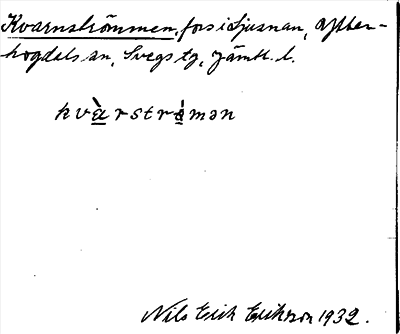 Kvarnströmmen, fors i Ljusnan, Ytter-
hogdals sn, Svegs tg, Jämtl. l.
kvàrstrǿmən
Nils Erik Erikson 1932.